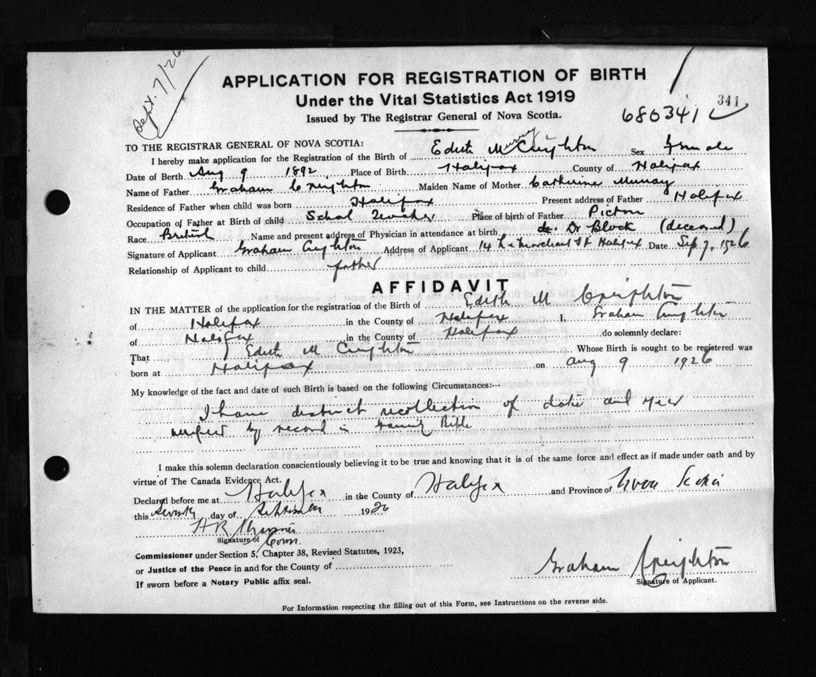 Sept. 7/26
APPLICATION FOR REGISTRATION OF BIRTH
Under the Vital Statistics Act 1919
Issued by The Registrar General of Nova Scotia.
341
680341
TO THE REGISTRAR GENERAL OF NOVA SCOTIA:
I hereby make application for the Registration of the Birth of Edith M Creighton Sex Female
Date of Birth Aug 9 1892 Place of Birth Halifax County of Halifax
Name of Father Graham Creighton Maiden Name of Mother Catherine Murray
Residence of Father when child was born Halifax Present address of Father Halifax
Occupation of Father at Birth of child School Teacher Place of birth of Father Pictou
Race British Name and present address of Physician in attendance at birth, Dr Black (deceased)
Signature of Applicant Graham Creighton Address of Applicant 14 Halifax Date. Sep. 7, 1926
Relationship of Applicant to child father
AFFIDAVIT
IN THE MATTER of the application for the registration of the Birth of Edith M Creighton
of Halifax in the County of Halifax I, Graham Creighton
of Halifax in the County of Halifax do solemnly declare:
That Edith M Creighton Whose Birth is sought to be registered was
born at Halifax on Aug 9 1926
My knowledge of the fact and date of such Birth is based on the following Circumstances:--
I have distinct recollection of date and year
verified by record in Family Bible
I make this solemn declaration conscientiously believing it to be true and knowing that it is of the same force and effect as if made under oath and by
virtue of The Canada Evidence Act.
Declared before me at Halifax in the County of Halifax and Province of Nova Scotia
this Seventh day of September 1926
Signature of Com.
Commissioner under Section 5, Chapter 38, Revised Statutes, 1923,
or Justice of the Peace in and for the County of
If sworn before a Notary Public affix seal.
Graham Creighton
Signature of Applicant.
For Information respecting the filling out of this Form, see Instructions on the reverse side.